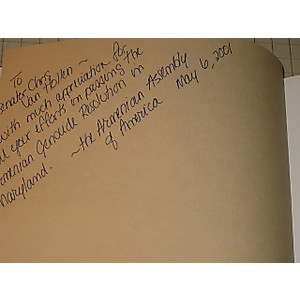 To
enator Chris
Van Hollen ~
with much appreciation for
ll your efforts in passing the
rmenian Genocide Resolution in
Maryland.
~ the Armenian Assembly
of America
May 6, 2001